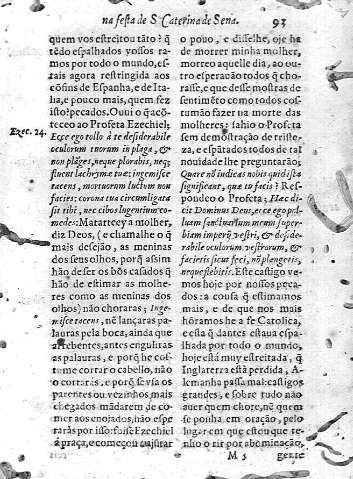 na festa de S. Caterina de Sena.
93
quem vos estreitou tãto? q̃
tẽdo espalhados vossos ra-
mos por todo o mundo, es-
tais agora restringida aos
cõfins de Espanha, e de Ita-
lia, e pouco mais, quem fez
isto? pecados. Ouui o q̃ acõ-
teceo ao Profeta Ezechiel;
Ezec. 24.
Ecce ego tollo à te desiderabile
oculorum tuorum in plaga, &
non plãges, neque plorabis, neq;
fluent lachrymæ tuæ: ingemisce
tacens, mortuorum luctum non
facies: corona tua circumligata
sit tibi, nec cibos lugentium co-
medes: Matartey a molher,
diz Deos, (e chamalhe o q̃
mais desejão, as meninas
dos seus olhos, porq̃ assim
hão de ser os bõs casados q̃
hão de estimar as molhe-
res como as meninas dos
olhos) não choraras; Inge-
misce tacens, nẽ lançaras pa-
lauras pela boca, ainda que
arrebentes, antes enguliras
as palauras, e porq̃ he cos-
tume cortar o cabello, não
o cortaràs, e porq̃ se vsa os
parentes ou vezinhos mais
chegados mãdarem de co-
mer aos enojados, não espe-
raràs por isso: saise Ezechiel
á praça, e começou a ajuntar
o pouo, e disselhe, oje ha
de morrer minha molher,
morreo aquelle dia, ao ou-
tro esperauão todos q̃ cho-
rasse, e que desse mostras de
sentimẽto como todos cos-
tumão fazer na morte das
molheres; sahio o Profeta
sem demõstração de triste-
za, e espãtados todos de tal
nouidade lhe preguntarão;
Quare nõ indicas nobis quid ista
significant, quæ tu facis? Res-
pondeo o Profeta; Hæc di-
cit Dominus Deus, ecce ego pol-
luam sanctuarium meum super-
biam imperij vestri, & deside-
rabile oculorum vestrorum, &
facietis sicut feci, nõ plangetis,
neque flebitis. Este castigo ve-
mos hoje por nossos peca-
dos: a cousa q̃ estimamos
mais, e de que nos mais
hõramos he a Fe Catolica,
e esta q̃ dantes estaua espa-
lhada por todo o mundo,
hoje està muy estreitada, q̃
Inglaterra està perdida, A-
lemanha passa mal: castigos
grandes, e sobre tudo não
auer quem chore, nẽ quem
se ponha em oração, pelo
lugar em que estou que te-
nho o rir por abominação,
M 5
gente